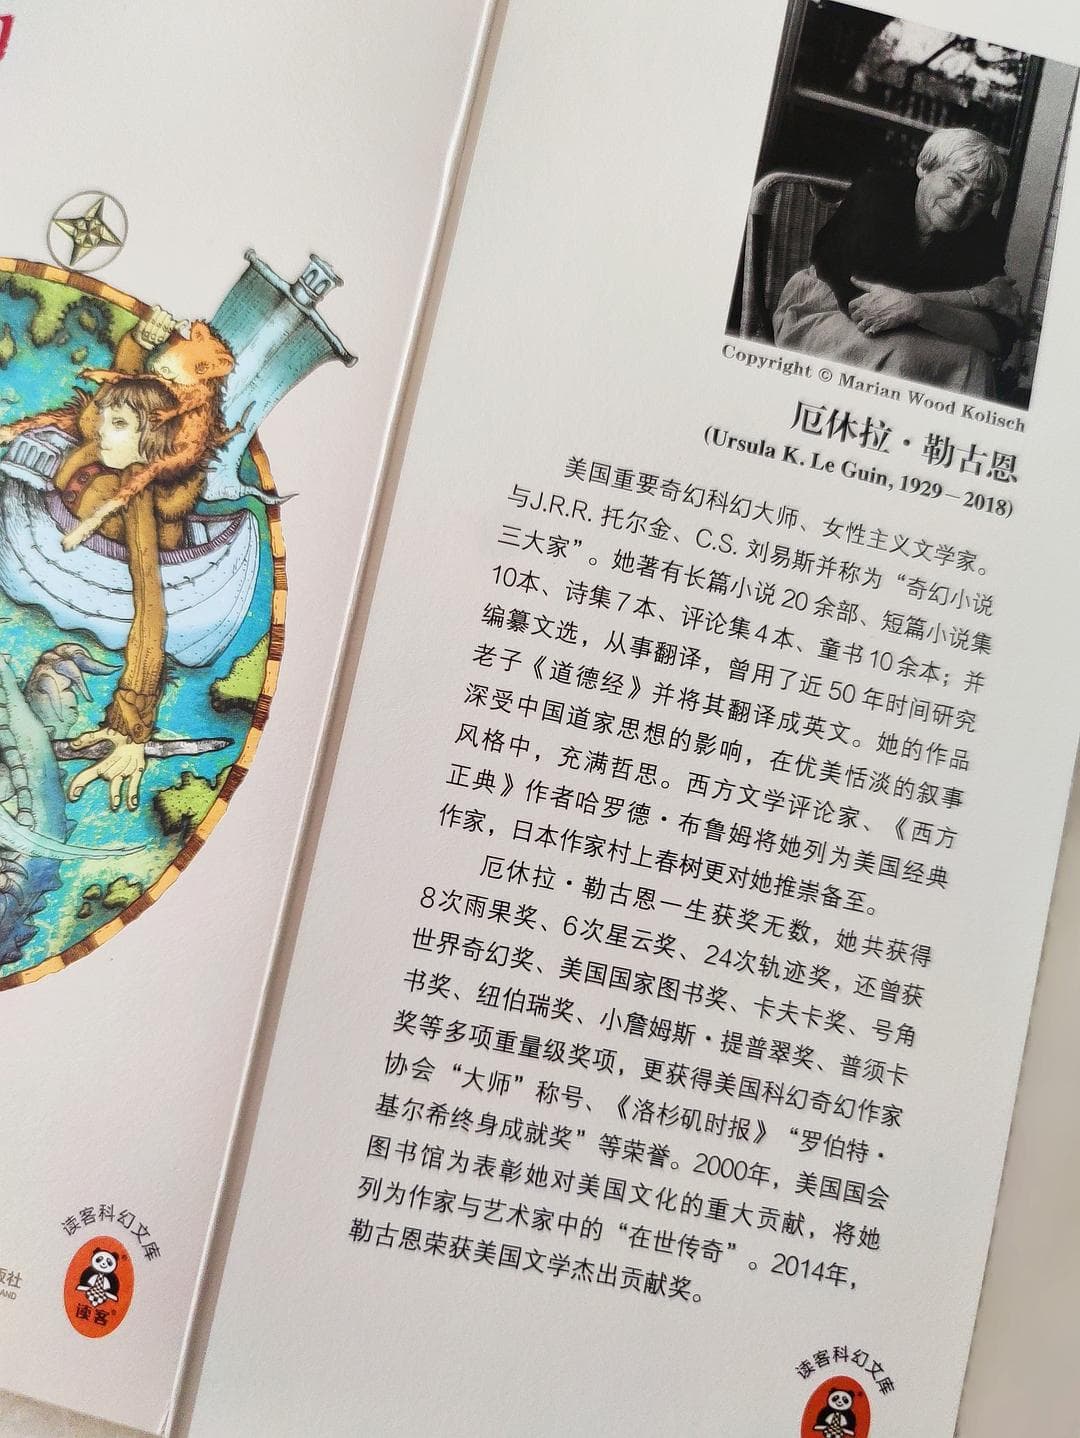 Copyright © Marian Wood Kolisch
厄休拉·勒古恩
(Ursula K. Le Guin, 1929–2018)
美国重要奇幻科幻大师、女性主义文学家。
与J.R.R. 托尔金、C.S. 刘易斯并称为“奇幻小说
三大家”。她著有长篇小说20余部、短篇小说集
10本、诗集7本、评论集4本、童书10余本；并
编纂文选，从事翻译，曾用了近50年时间研究
老子《道德经》并将其翻译成英文。她的作品
深受中国道家思想的影响，在优美恬淡的叙事
风格中，充满哲思。西方文学评论家、《西方
正典》作者哈罗德·布鲁姆将她列为美国经典
作家，日本作家村上春树更对她推崇备至。
厄休拉·勒古恩一生获奖无数，她共获得
8次雨果奖、6次星云奖、24次轨迹奖，还曾获
世界奇幻奖、美国国家图书奖、卡夫卡奖、号角
书奖、纽伯瑞奖、小詹姆斯·提普翠奖、普须卡
奖等多项重量级奖项，更获得美国科幻奇幻作家
协会“大师”称号、《洛杉矶时报》“罗伯特·
基尔希终身成就奖”等荣誉。2000年，美国国会
图书馆为表彰她对美国文化的重大贡献，将她
列为作家与艺术家中的“在世传奇”。2014年，
勒古恩荣获美国文学杰出贡献奖。
读客科幻文库
读客®
版社
AND
读客科幻文库